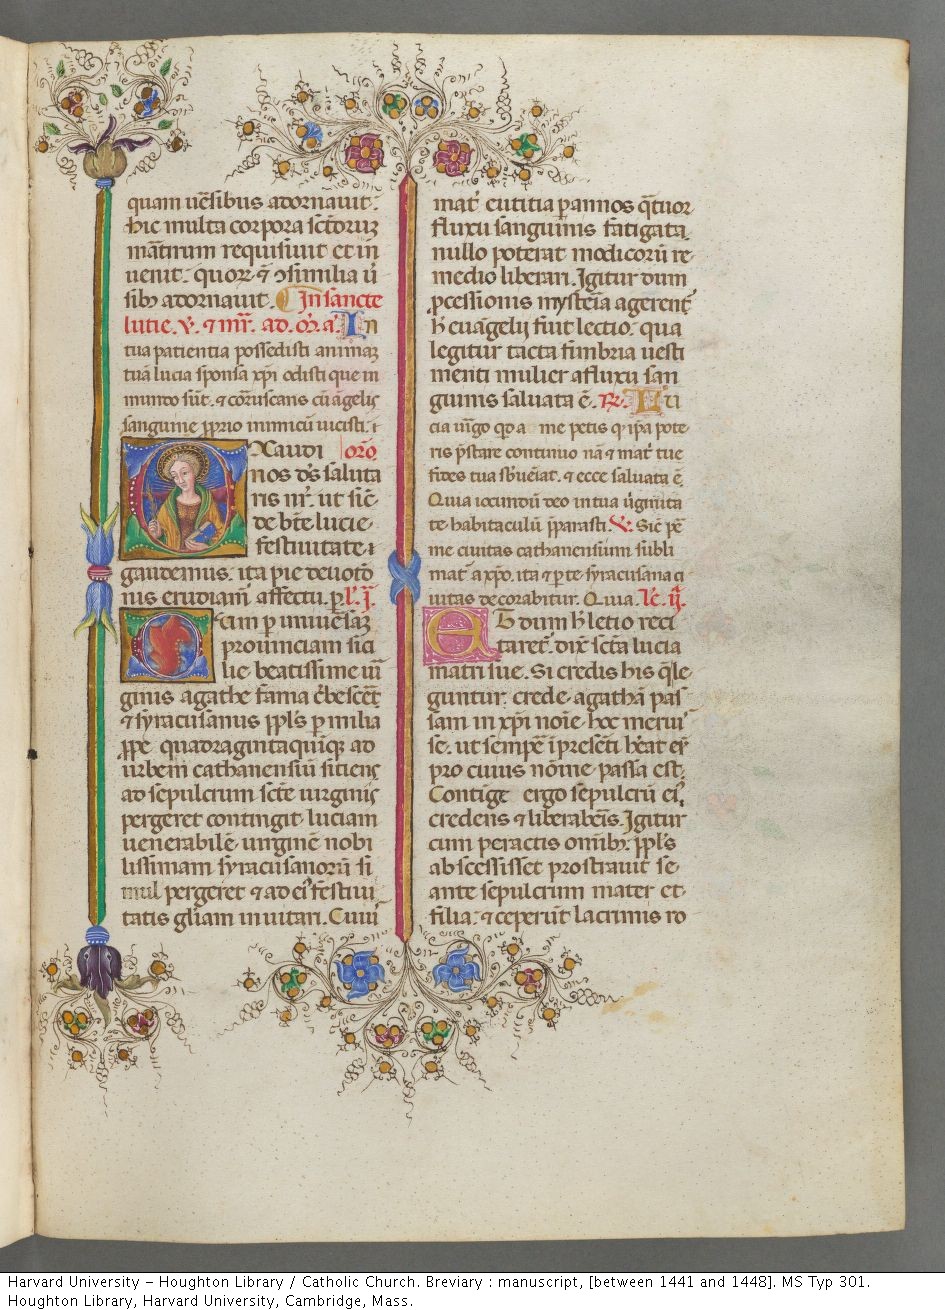 quam ūēsibus adornauit·
Hic multa corpora sc̄toruȝ
mārtirum requisiuit et in
uenit· quoꝝ ⁊ ꝯsimilia ū
sibꝰ adornauit. In sancte
lutie. v̄. ⁊ mr̄. ad. ōr. a᷒. In
tua patientia possedisti animaȝ
tuā lucia sponsa xp̄i odisti que in
mundo sūt. ⁊ coruscans cū āgelis
sanguine ꝓprio inimicū uicisti. orō
Exaudi
nos ds̄ saluta
ris nr̄. ut sic̄
de btē lucie
festiuitate
gaudemus. ita pie deuotō
nis erudiam̄ affectu. p. l̄. j.
Cum ꝑ uniuēsaȝ
prouinciam sici
lie beatissime uir̄
ginis agathe fama crēbescēt
⁊ syracusanus ppl̄s ꝑ milia
ꝓpe quadragintaquinqȝ ad
urbem cathanensiū sitiens
ad sepulcrum scte uirginis
pergeret contingit luciam
uenerabilē uirginē nobi
lissimam syracusanorū si
mul pergeret ⁊ ad eī festiui
tatis gl̄iam inuitari. Cuiꝰ
mat᷒ eutitia ꝑ annos q̄tuor
fluxu sanguinis fatigata
nullo poterat modicorū re
medio liberari. Igitur dum
ꝓcessionis mystēia agerent᷒
h̄ euāgelij fuit lectio. qua
legitur tacta fimbria uesti
menti mulier a fluxu san
guinis saluata ē. ꝶ. Lu
cia uirgo qd a me petis qꝰ ip̄a pote
ris p̄stare continuo nā ⁊ mat᷒ tue
fides tua sb̄uēiat. ⁊ ecce saluata ē
Quia iocundū deo in tua ūginita
te habitaculū p̄parasti. ℣. Sic̄ pē
me ciuitas cathanensium subli
mat᷒ a xp̄o. ita ⁊ ꝑ te syracusana ci
uitas decorabitur. Quia. lc̄. ij.
At dum h̄ lectio reci
taret᷒. dix̄ sc̄ta lucia
matri sue. Si credis his q̄ le
guntur. crede agathā pas
sam in xp̄i noīe hoc meruis
se. ut sempē ī presēti hēat eū
pro cuius noīe passa est.
Contige ergo sepulcrū eī
credens ⁊ liberabēis. Igitur
cum peractis omībꝰ ppl̄s
abscessisset prostrauit se
ante sepulcrum mater et
filia. ⁊ ceperūt lacrimis ro
Harvard University – Houghton Library / Catholic Church. Breviary : manuscript, [between 1441 and 1448]. MS Typ 301.
Houghton Library, Harvard University, Cambridge, Mass.